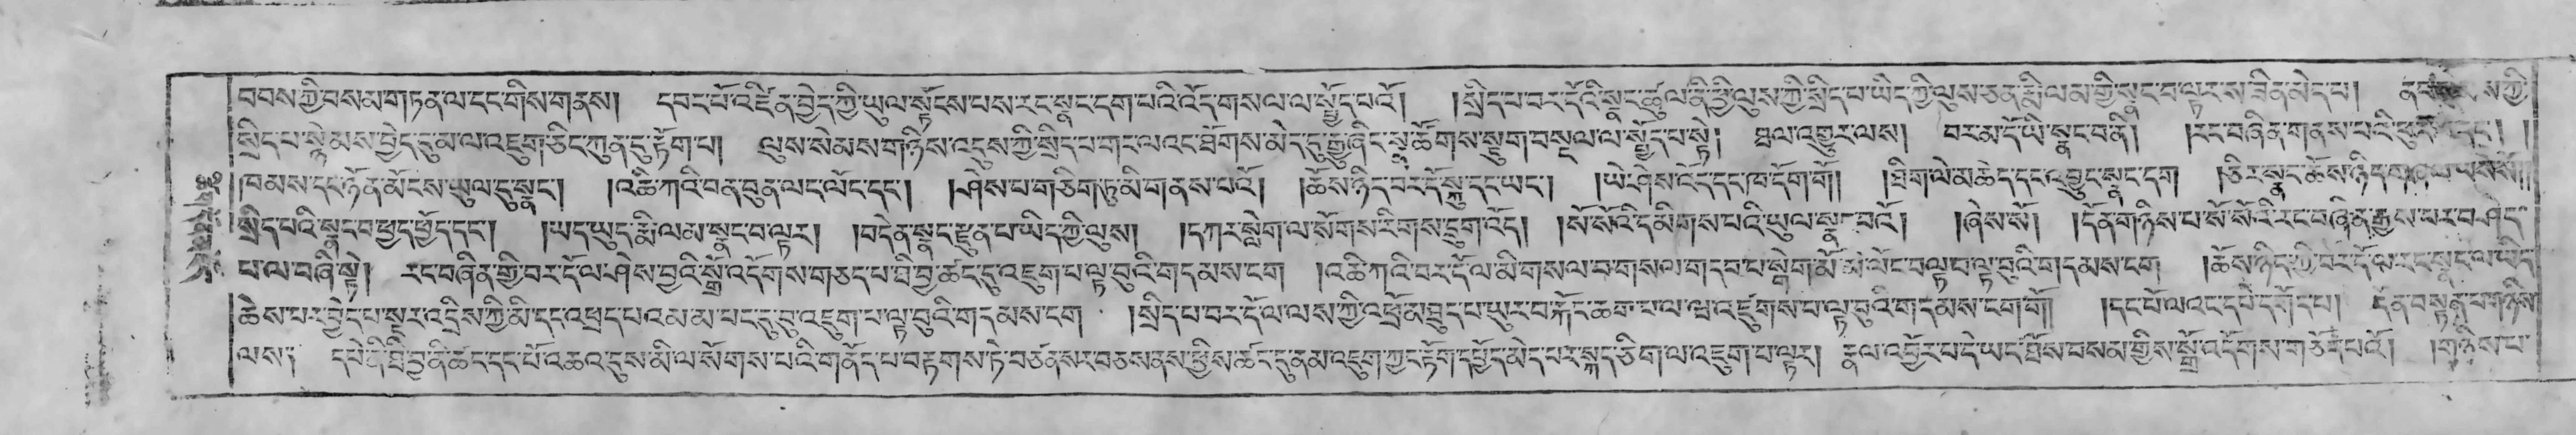 བབས་ཀྱི་བསམ་གཏན་ལ་དང་གིས་གནས། དབང་པོ་འཛིན་བྱེད་ཀྱི་ཡུལ་སྟོངས་པས་རང་སྣང་དག་པའི་འོད་གསལ་ལ་སྤྱོད་པའོ། །སྲིད་པ་བར་དོའི་སྣང་ཚུལ་ནི་ཕྱི་ལུས་ཀྱི་སྲིད་པ་ཡིད་ཀྱི་ལུས་ཅན་རྨི་ལམ་གྱི་སྣང་བ་ལྟར་ས་ཟིན་མེད་པ། ནང་ ས་ཀྱི་
སྲིད་པ་སྙེམས་བྱེད་དུམ་ལ་འཇུག་ཅིང་ཀུན་ཏུ་རྟོག་པ། ལུས་སེམས་གཉིས་འདུས་ཀྱི་སྲིད་པ་གང་ལའང་ཐོགས་མེད་དུ་རྒྱུ་ཞིང་སྣ་ཚོགས་སྡུག་བསྔལ་ལ་སྤྱོད་པ་སྟེ། ཐལ་འགྱུར་ལས། བར་མ་དོ་ཡི་སྣང་བ་ནི། །རང་བཞིན་གནས་པའི་ དང༌། །
ཁམས་དང་ཉོན་མོངས་ཡུལ་དུ་སྣང༌། །འཆི་ཀའི་བན་བུན་ལང་ལོང་དང༌། །ཤེས་པ་གཅིག་ཏུ་མི་གནས་པའོ། །ཆོས་ཉིད་བར་དོ་སྐུ་དང་ཡང༌། །ཡེ་ཤེས་ངོ་དང་ཁ་དོག་གོ། །ཐིག་ལེ་མཆེད་དང་འབྱུང་སྣང་དག །ཅིར་སྣང་ཆོས་ཉིད་
སྲིད་པའི་སྣང་བ་ཕྱད་ཕྱོད་དང༌། །ཡང་ཡུད་རྨི་ལམ་སྣང་བ་ལྟར། །བདེན་སྣང་རྫུན་པ་ཡིད་ཀྱི་ལུས། །དཀར་སྨེག་ལ་སོགས་རིགས་དྲུག་འོད། །སོ་སོའི་དམིགས་པའི་ཡུལ་སྣང་བའོ། །ཞེས་སོ། །དོན་གཉིས་པ་སོ་སོའི་རང་བཞིན་རྒྱས་པར་བཤད་
པ་ལ་བཞི་སྟེ། རང་བཞིན་གྱི་བར་དོ་ལ་ཤེས་བྱའི་སྒྲོ་འདོགས་གཅད་པ་བྱི་བྱ་ཚང་དུ་འཇུག་པ་ལྟ་བུའི་གདམས་ངག །འཆི་ཀའི་བར་དོ་ལ་མི་གསལ་བ་གསལ་གདབ་པ་སྒེག་མོ་མེ་ལོང་བལྟ་བ་ལྟ་བུའི་གདམས་ངག །ཆོས་ཉིད་ཀྱི་བར་དོ་ལ་རང་སྣང་ལ་ཡིད་
ཆེས་པར་བྱེད་པ་སྔར་འདྲིས་ཀྱི་མི་དང་འཕྲད་པའམ་མ་པང་དུ་བུ་འཇུག་པ་ལྟ་བུའི་གདམས་ངག །སྲིད་པ་བར་དོ་ལ་ལས་ཀྱི་འཕྲོ་མཐུད་པ་ཡུར་བ་རྐོང་ཆག་པ་ལ་ཝ་འཛུགས་པ་ལྟ་བུའི་གདམས་ངག་གོ། །དང་པོ་ལའང་དཔེ་དགོད་པ། དོན་བསྟན་པ་གཉིས་
ལས། དཔེ་ནི་བྱི་བྱ་ནི་ཚང་དང་པོ་འཆའ་དུས་མི་ལ་སོགས་པའི་གནོད་པ་བརྟགས་ཏེ་བཙན་སར་བཅས་ནས་ཕྱིས་ཚང་དུ་ནམ་འཇུག་ཀྱང་རྟོག་དཔྱོད་མེད་པར་སྐད་ཅིག་ལ་འཇུག་པ་ལྟར། རྣལ་འབྱོར་པ་དེ་ཡང་ཐོས་བསམ་གྱིས་སྒྲོ་འདོགས་གཅོད་པའོ། །གཉིས་པ་